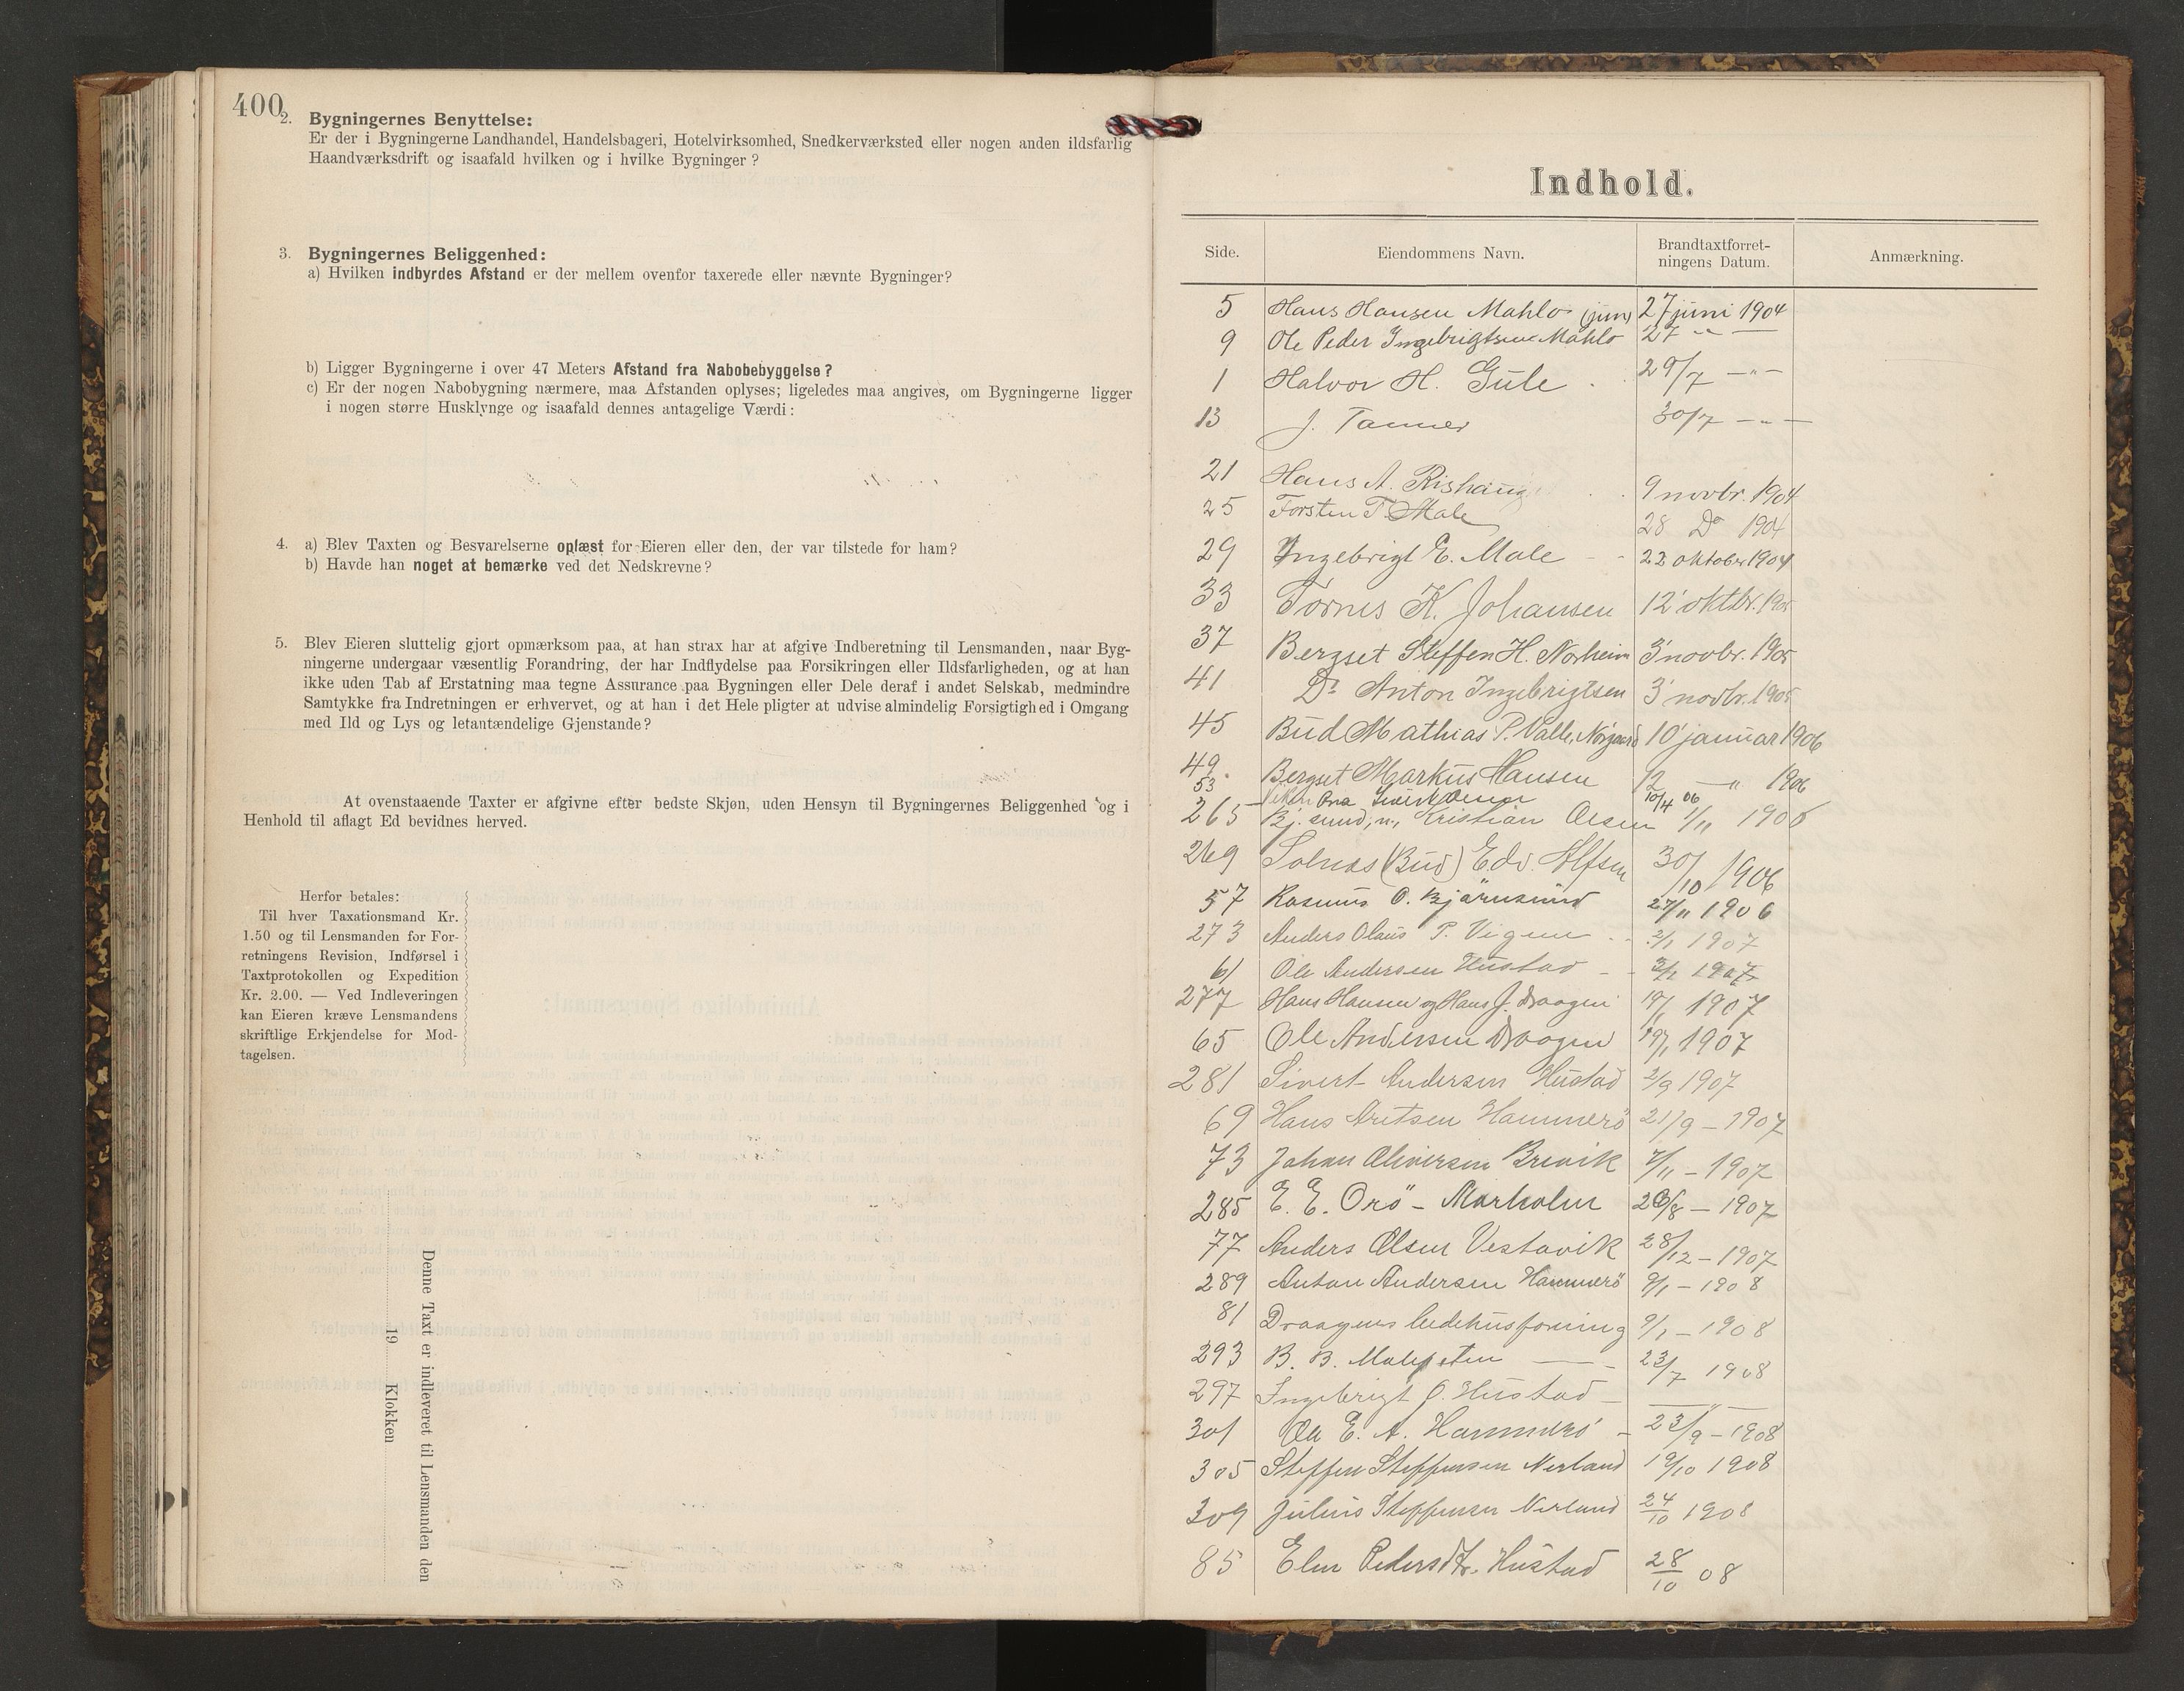 400
2. Bygningernes Benyttelse:
Er der i Bygningerne Landhandel, Handelsbageri, Hotelvirksomhed, Snedkerværksted eller nogen anden ildsfarlig
Haandværksdrift og isaafald hvilken og i hvilke Bygninger?
3. Bygningernes Beliggenhed:
a) Hvilken indbyrdes Afstand er der mellem ovenfor taxerede eller nævnte Bygninger?
b) Ligger Bygningerne i over 47 Meters Afstand fra Nabobebyggelse?
c) Er der nogen Nabobygning nærmere, maa Afstanden oplyses; ligeledes maa angives, om Bygningerne ligger
i nogen større Husklynge og isaafald dennes antagelige Værdi:
4. a) Blev Taxten og Besvarelserne oplæst for Eieren eller den, der var tilstede for ham?
b) Havde han noget at bemærke ved det Nedskrevne?
5. Blev Eieren sluttelig gjort opmærksom paa, at han strax har at afgive Indberetning til Lensmanden, naar Byg-
ningerne undergaar væsentlig Forandring, der har Indflydelse paa Forsikringen eller Ildsfarligheden, og at han
ikke uden Tab af Erstatning maa tegne Assurance paa Bygningen eller Dele deraf i andet Selskab, medmindre
Samtykke fra Indretningen er erhvervet, og at han i det Hele pligter at udvise almindelig Forsigtighed i Omgang
med Ild og Lys og letantændelige Gjenstande?
At ovenstaaende Taxter er afgivne efter bedste Skjøn, uden Hensyn til Bygningernes Beliggenhed og i
Henhold til aflagt Ed bevidnes herved.
Herfor betales:
Til hver Taxationsmand Kr.
1.50 og til Lensmanden for For-
retningens Revision, Indførsel i
Taxtprotokollen og Expedition
Kr. 2.00. — Ved Indleveringen
kan Eieren kræve Lensmandens
skriftlige Erkjendelse for Mod-
tagelsen.
Denne Taxt er indleveret til Lensmanden den
19 Klokken
Indhold.
Side. Eiendommens Navn. Brandtaxtforret- Anmærkning.
ningens Datum.
5 Hans Hansen Mahlo (jun) 27 juni 1904
9 Ole Peder Ingebrigtsen Mahlo 27 " —
1 Halvor H. Gule 29/7 — " —
13 J. Tanner 30/7 — " —
21 Hans A. Rishaug 9 novbr. 1904
25 Torsten T. Male 28 Do 1904
29 Ingebrigt E. Male 22 oktober 1904
33 Tornes K. Johansen 12 oktbr. 1905
37 Bergset Steffen H. Norheim 3 novbr. 1905
41 Do Anton Ingebrigtsen 3 novbr. 1905
45 Bud Mathias P. Valle, 10 januar 1906
49. Bergset Markus Hansen 12 — " 1906
53 10/4 06
265 Bj.sund, n., Kristian Olsen 1/11 1906
269 Solnæs (Bud) Edv. Alfsen 30/10 1906
57 Rasmus O. Bjørnsund 27/11 1906
273 Anders Olaus P. Vigen 2/1 1907
61 Ole Andersen Hustad 1907
277 Hans Hansen og Hans J. Draagen 19/1 1907
65 Ole Andersen Draagen 19/1 1907
281 Sivert Andersen Hustad 2/9 1907
69 Hans Aretsen Hammerö 21/9 – 1907
73 Johan Oliversen Brevik 7/11 – 1907
285 E. E. Orö – Marholm 1907
77 Anders Olsen Vestavik 28/12 – 1907
289 Anton Andersen Hammerö 9/1 – 1908
81 Draagens bedehusforening 9/1 – 1908
293 B. B. Malesten 23/7 1908
297 Ingebrigt O. Hustad — " —
301 Ole E. A. Hammerö 23/9 – 1908
305 Steffen Steffensen Nerland 19/10 1908
309 Julius Steffensen Nerland 24/10 1908
85 Elen Pedersdtr. Hustad 28/10 08